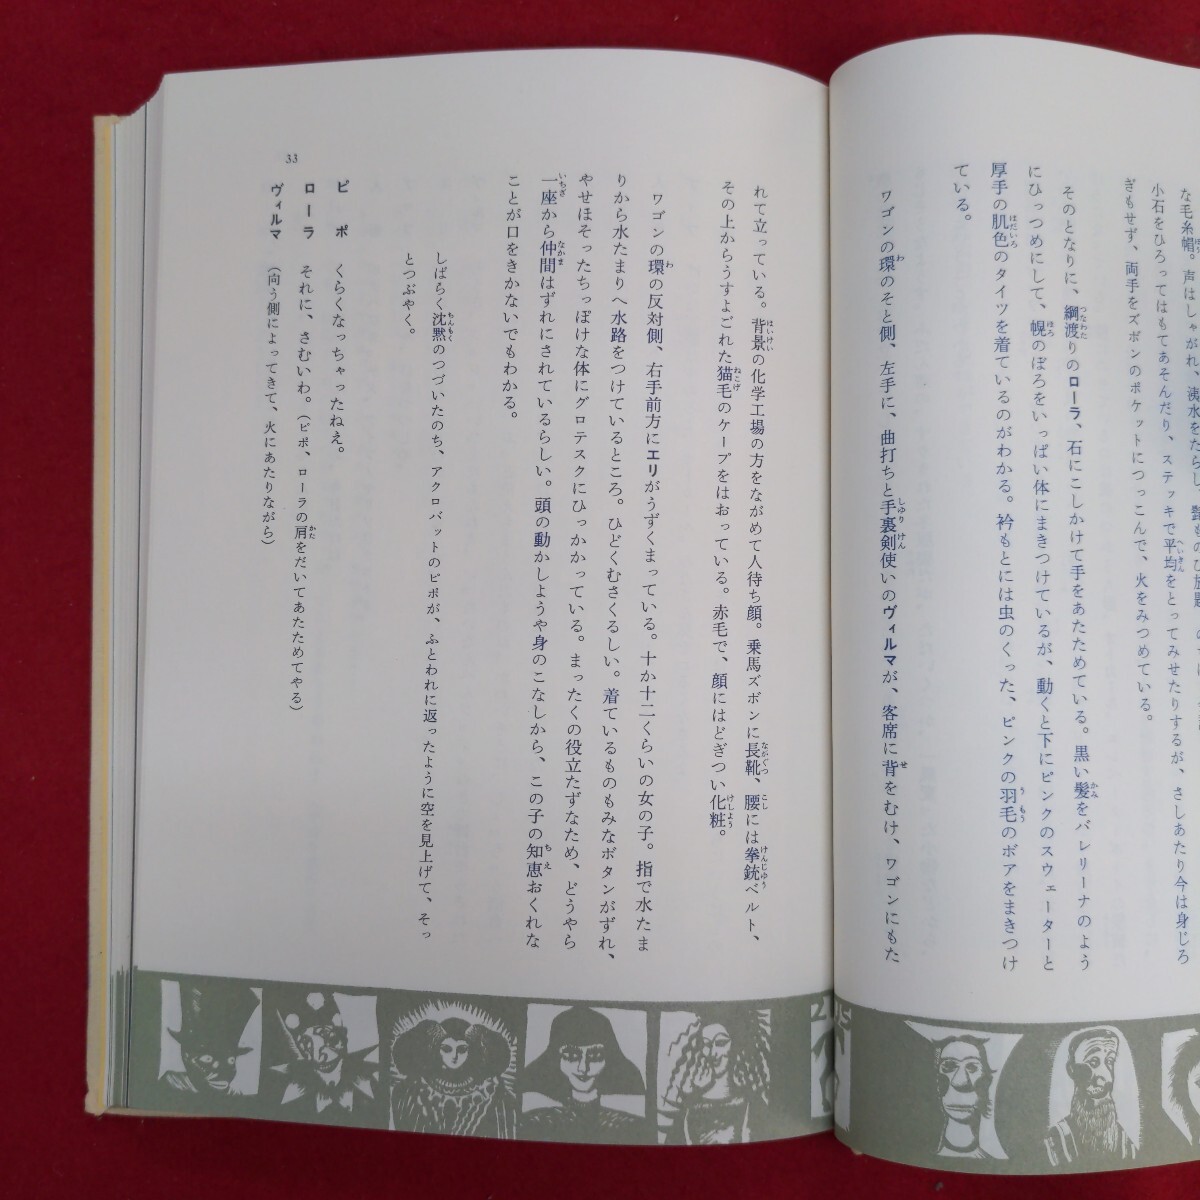 な毛糸帽。声はしゃがれ、洟水をたらし、
小石をひろってはもてあそんだり、ステッキで平均をとってみせたりするが、さしあたり今は身じろ
ぎもせず、両手をズボンのポケットにつっこんで、火をみつめている。
そのとなりに、綱渡りのローラ、石にこしかけて手をあたためている。黒い髪をバレリーナのよう
にひっつめにして、幌のぼろをいっぱい体にまきつけているが、動くと下にピンクのスウェーターと
厚手の肌色のタイツを着ているのがわかる。衿もとには虫のくった、ピンクの羽毛のボアをまきつけ
ている。
ワゴンの環のそと側、左手に、曲打ちと手裏剣使いのヴィルマが、客席に背をむけ、ワゴンにもた
れて立っている。背景の化学工場の方をながめて人待ち顔。乗馬ズボンに長靴、腰には拳銃ベルト、
その上からうすよごれた猫毛のケープをはおっている。赤毛で、顔にはどぎつい化粧。
ワゴンの環の反対側、右手前方にエリがうずくまっている。十か十二くらいの女の子。指で水たま
りから水たまりへ水路をつけているところ。ひどくむさくるしい。着ているものもみなボタンがずれ、
やせほそったちっぽけな体にグロテスクにひっかかっている。まったくの役立たずなため、どうやら
一座から仲間はずれにされているらしい。頭の動かしようや身のこなしから、この子の知恵おくれな
ことが口をきかないでもわかる。
しばらく沈黙のつづいたのち、アクロバットのピポが、ふとわれに返ったように空を見上げて、そっ
とつぶやく。
ピポ くらくなっちゃったねえ。
ローラ それに、さむいわ。(ピポ、ローラの肩をだいてあたためてやる)
ヴィルマ (向う側によってきて、火にあたりながら)
33